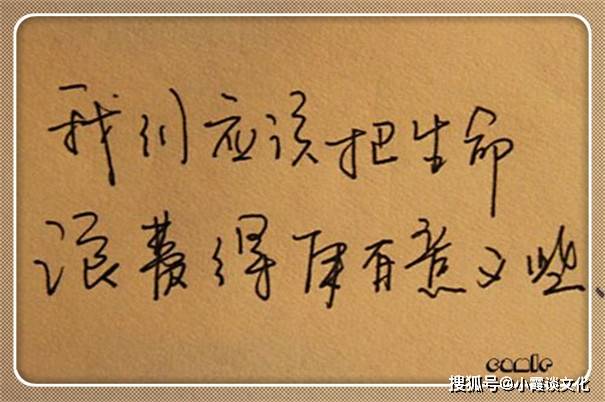 我们应该把生命
浪费得更有意义些、
comic
搜狐号@小霞谈文化